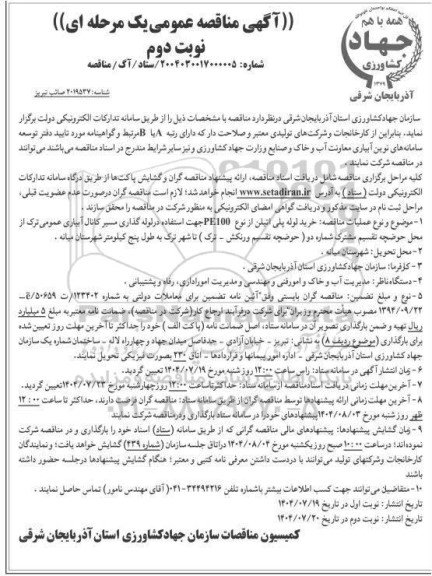 ((آگهی مناقصه عمومی یک مرحله ای))
نوبت دوم
شماره: ۲۰۰۴۰۳۰۰۱۷۰۰۰۰۰۵/ستاد/آک/مناقصه
همه با هم
جهاد
کشاورزی
۱۳۷۹
آذربایجان شرقی
شناسه: ۲۰۱۹۵۳۷ صائب تبریز
سازمان جهادکشاورزی استان آذربایجان‌شرقی درنظردارد مناقصه با مشخصات ذیل را از طریق سامانه تدارکات الکترونیکی دولت برگزار
نماید، بنابراین از کارخانجات و شرکت‌های تولیدی معتبر و صلاحت دار که دارای رتبه A یا B مرتبط و گواهینامه مورد تایید دفتر توسعه
سامانه‌های نوین آبیاری معاونت آب وخاک و صنایع وزارت جهاد کشاورزی و نیز سایر شرایط مندرج در اسناد مناقصه می‌باشند می‌توانند
در مناقصه شرکت نمایند.
کلیه مراحل برگزاری مناقصه شامل دریافت اسناد مناقصه، ارائه پیشنهاد مناقصه گران و گشایش پاکت‌ها از طریق درگاه سامانه تدارکات
الکترونیکی دولت (ستاد) به آدرس www.setadiran.ir انجام خواهدشد؛ لازم است مناقصه گران درصورت عدم عضویت قبلی،
مراحل ثبت نام در سایت مذکور و دریافت گواهی امضای الکترونیکی به منظور شرکت در مناقصه را محقق سازند.
۱- موضوع و نوع عملیات مناقصه: خرید لوله پلی اتیلن از نوع PE100 جهت استفاده درلوله گذاری مسیر کانال آبیاری عمومی ترک از
محل حوضچه تقسیم مشترک شماره دو (حوضچه تقسیم ورنکش - ترک) تا شهر ترک به طول پنج کیلومتر شهرستان میانه.
۲- محل تحویل: شهرستان میانه.
۳- کارفرما: سازمان جهادکشاورزی استان آذربایجان شرقی.
۴- دستگاه ناظر: مدیریت آب و خاک و امورفنی و مهندسی و مدیریت اموراداری، رفاه و پشتیبانی.
۵- نوع و مبلغ تضمین: مناقصه گران بایستی وفق "آئین نامه تضمین برای معاملات دولتی به شماره ۱۲۳۴۰۲/ت ۵۰۶۵۹/ه-
۱۳۹۴/۰۹/۲۲ مصوب هیأت محترم وزیران" برای شرکت درفرآیند ارجاع کار(شرکت در مناقصه)، ضمانت نامه معتبربه مبلغ ۵ میلیارد
ریال تهیه و ضمن بارگذاری تصویرآن در سامانه ستاد، اصل ضمانت نامه (پاکت الف) خود را حداکثر تا آخرین مهلت روز تعیین شده
برای بارگذاری (موضوع ردیف ۸) به نشانی: تبریز - خیابان آزادی - حدفاصل میدان جهاد و چهارراه لاله - ساختمان شماره یک سازمان
جهاد کشاورزی استان آذربایجان شرقی - اداره امور پیمانها و قراردادها - اتاق ۲۳۰ بصورت فیزیکی تحویل نمایند.
۶- زمان انتشار آگهی در سامانه ستاد: راس ساعت ۱۲:۰۰ روز شنبه مورخ ۱۴۰۴/۰۷/۱۹ تعیین گردید.
۷- آخرین مهلت زمانی دریافت اسناد مناقصه ازسامانه ستاد: حداکثر تا ساعت ۱۲:۰۰ روز چهارشنبه مورخ ۱۴۰۴/۰۷/۲۳ تعیین گردید.
۸- آخرین مهلت زمانی ارائه پیشنهادها توسط مناقصه گران از طریق سامانه ستاد: مناقصه گران فرصت دارند، حداکثر تا ساعت ۱۲:۰۰
ظهر روز شنبه مورخ ۱۴۰۴/۰۸/۰۳ پیشنهادهای خود را در سامانه ستاد بارگذاری ودرمناقصه شرکت نمایند
۹- زمان گشایش پیشنهادها: پیشنهادهای مالی مناقصه گرانی که از طریق سامانه (ستاد) اسناد خود را بارگذاری و در مناقصه شرکت
نموده‌اند؛ درساعت ۱۰:۰۰ صبح روز یکشنبه مورخ ۱۴۰۴/۰۸/۰۴ دراتاق جلسه سازمان (شماره ۴۳۹) گشایش خواهد یافت؛ و نمایندگان
کارخانجات وشرکتهای تولید می‌توانند با دردست داشتن معرفی نامه کتبی و معتبر؛ هنگام گشایش پیشنهادها درجلسه حضور داشته
باشند
۱۰- متقاضیان می‌توانند جهت کسب اطلاعات بیشتر باشماره تلفن ۳۴۴۹۴۲۱۶-۰۴۱ (آقای مهندس نامور) تماس حاصل نمایند.
تاریخ انتشار: نوبت اول در تاریخ ۱۴۰۴/۰۷/۱۹
تاریخ انتشار: نوبت دوم در تاریخ ۱۴۰۴/۰۷/۲۰
کمیسیون مناقصات سازمان جهادکشاورزی استان آذربایجان شرقی